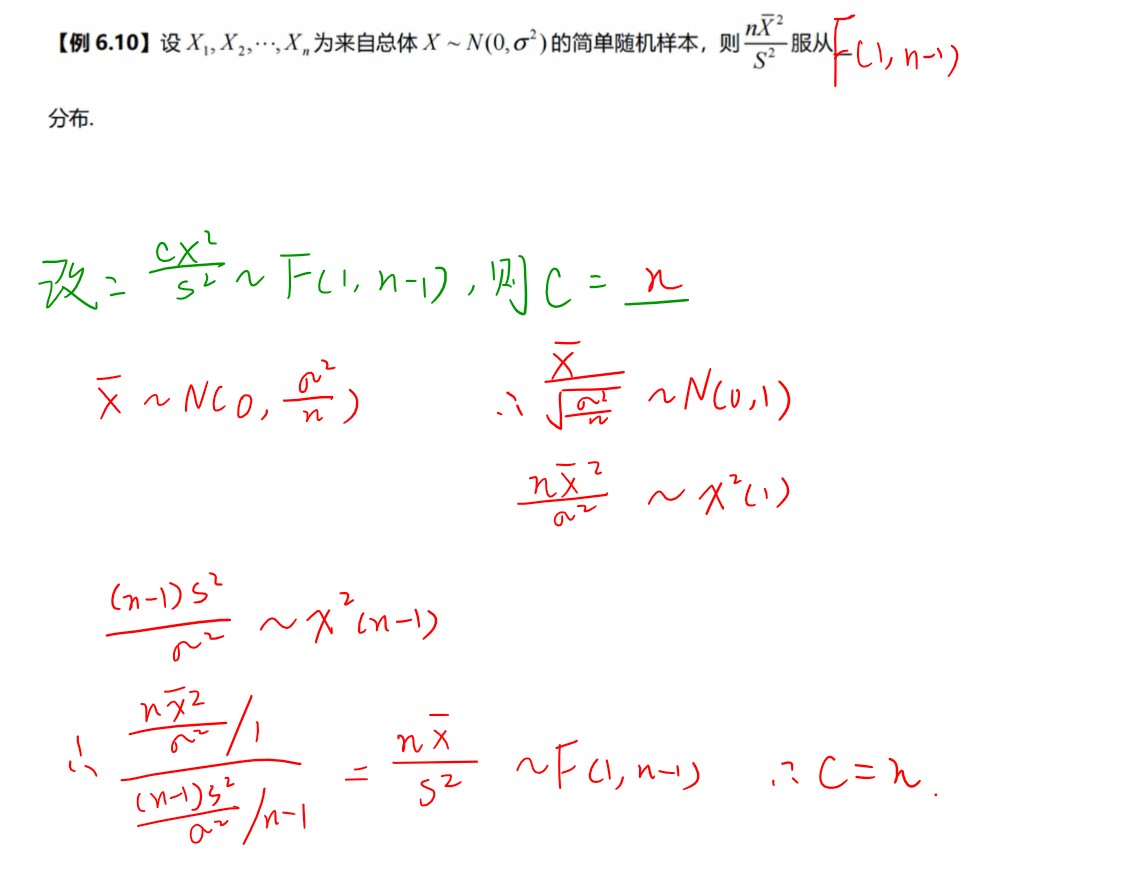 【例 6.10】设 X₁, X₂, ⋯, Xₙ 为来自总体 X ~ N(0, σ²) 的简单随机样本，则 nX̄²/S² 服从 F(1, n-1)
分布.
改: cX²/S² ~ F(1, n-1), 则 C = n
X̄ ~ N(0, σ²/n) ∴ X̄/√(σ²/n) ~ N(0,1)
nX̄²/σ² ~ χ²(1)
(n-1)S²/σ² ~ χ²(n-1)
∴ (nX̄²/σ² /1)/((n-1)S²/σ² /n-1) = nX̄/S² ~ F(1, n-1) ∴ C = n.